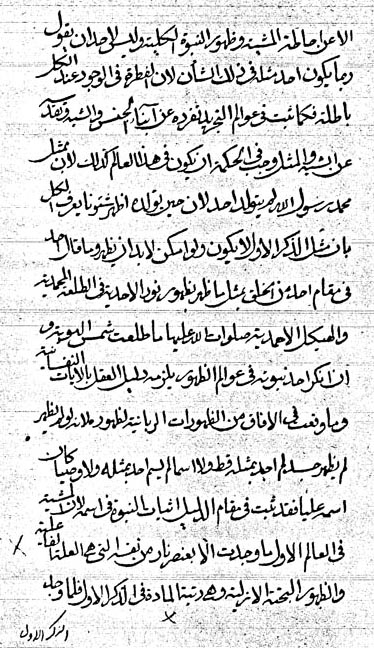 الا عن احاطة المشية وظهور النبوة الكلية وليس لاحد ان يقول
ربما يكون احد مثله في ذلك الشأن لان الفطرة في الوجود عند الكل
باطلة فكما ثبت في عوالم التجريد تفرده عن ابناء الجنس والشبه وتقدسه
عن الشبه والمثل وجب في الحكمة ان يكون في هذا العالم كذلك لان بمثل
محمد رسول الله لم يتولد احد لان حين تولده اظهر شئونا يعرف الكل
بان مثل الذكر الاول لا يكون ولو امكن لابد ان يظهر وما قال احد
في مقام احد من الخلق بمثل ما ظهر بظهور نور الاحدية في الطلعة المحمدية
والهيكل الاحمدية صلوات الله عليها ما طلعت شمس الهوية و
ان انكر احد نبوته في عوالم الظهور يلزمه دليل العقل بالايات النفسانية
وما وقعت في الافاق من الظهورات الربانية لظهوره لانه لو لم يظهر
لم يظهر جسد لم اجد بمثله قط ولا اسما لم يسم احد بمثله ولا وصيا كان
اسمه عليا فقد ثبت في مقام الدليل اثبات النبوة في اسمه لان المشية
في العالم الاول ما وجدت الا بعنصر نار من نفسه التي هي العلة الفاعلية
والظهور البحتة الازلية وهي رتبة المادة في الذكر الاول فلما وجد
الذكر الاول